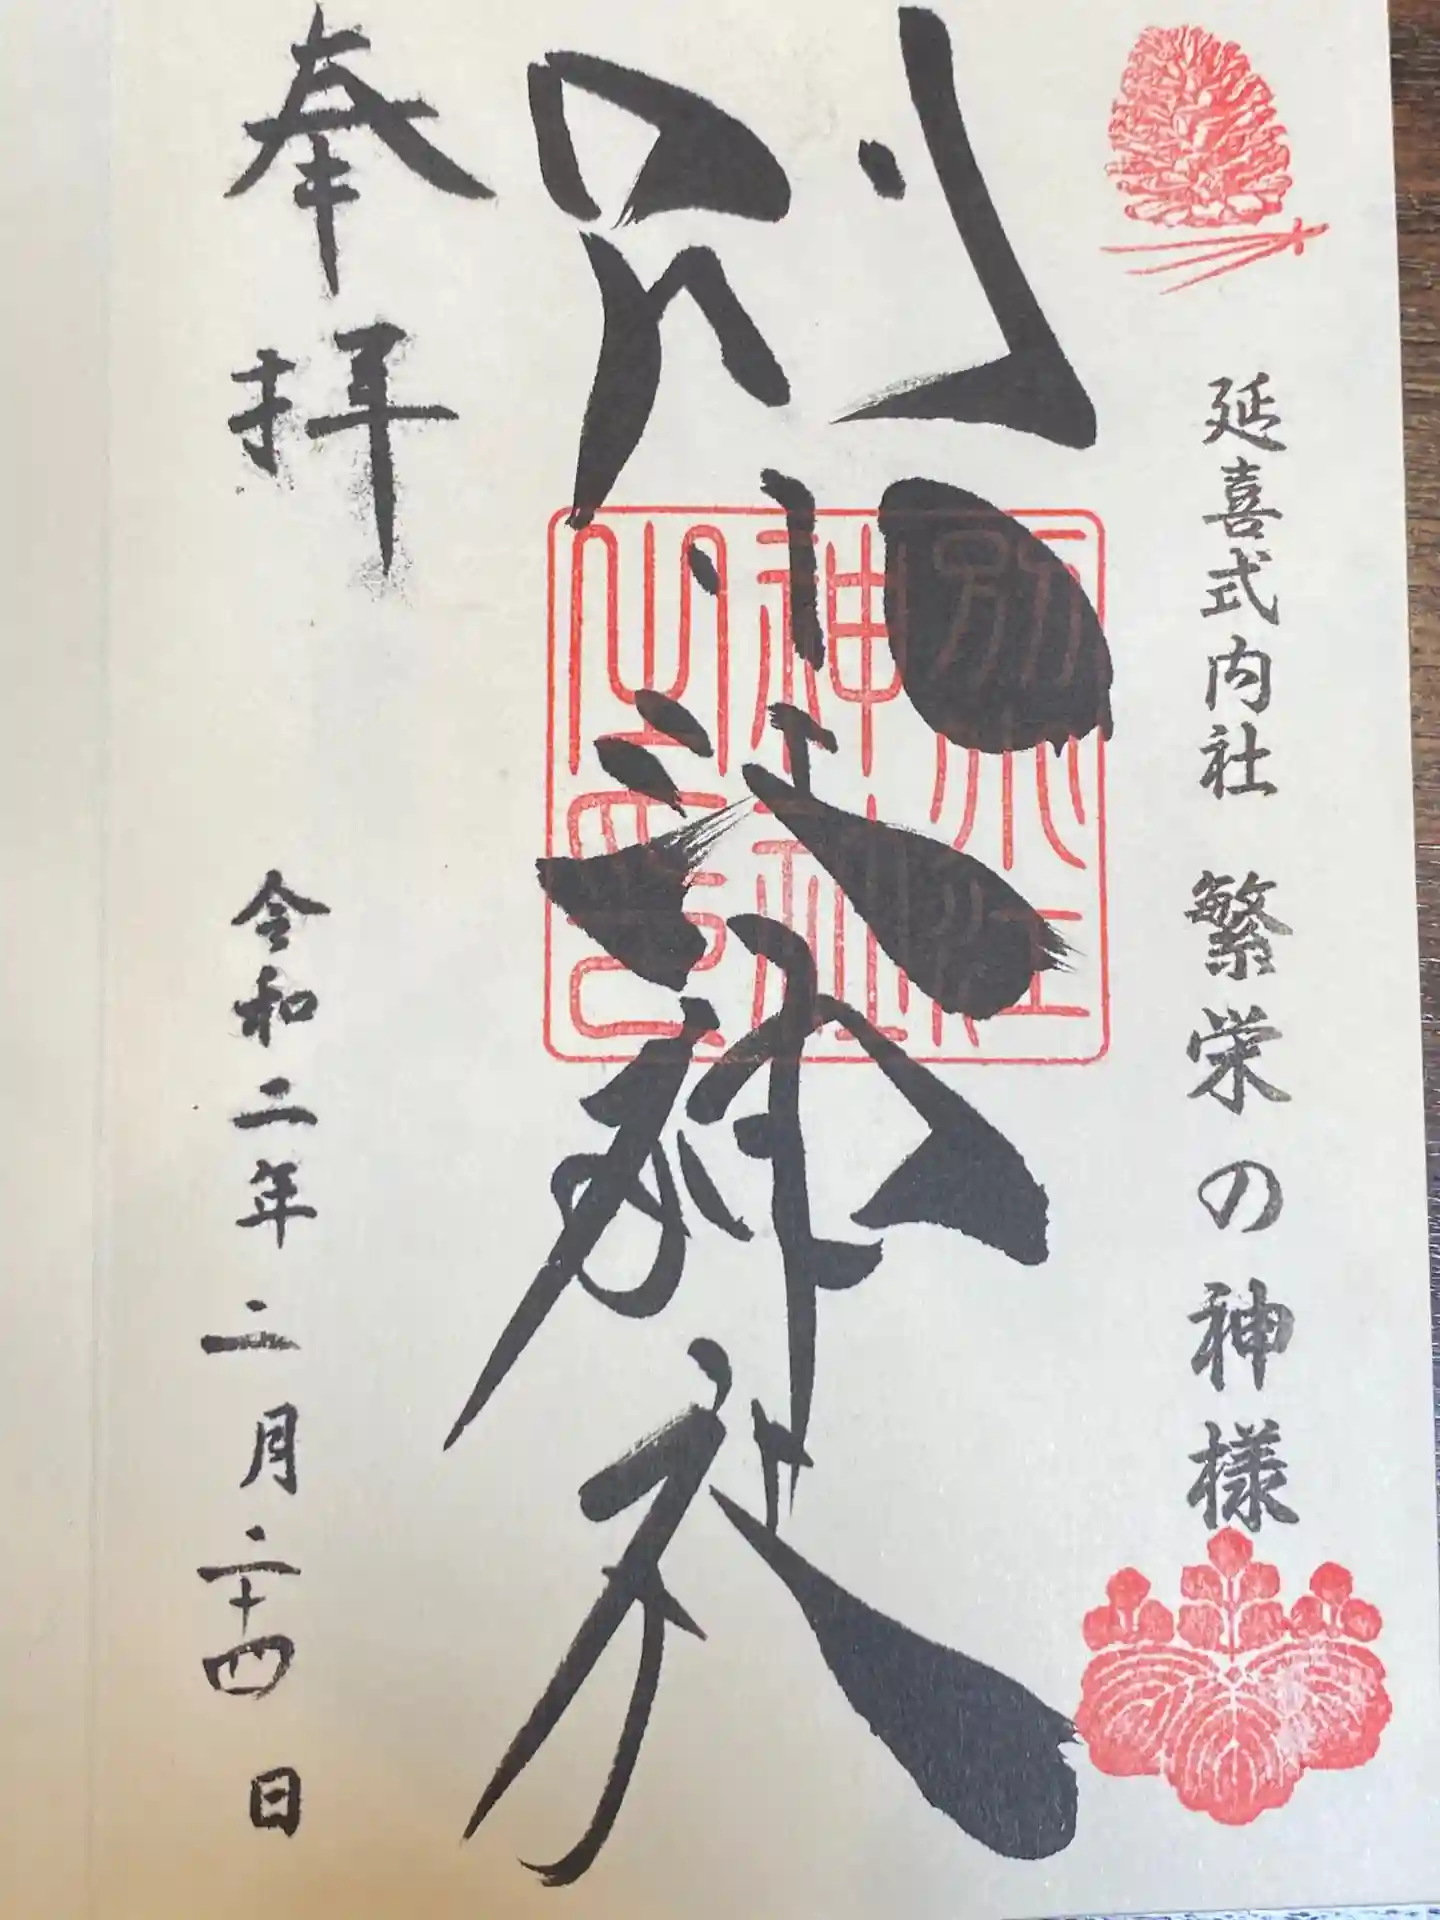 延喜式内社 繁栄の神様
別小江神社
別小江神社之印
奉拝
令和二年二月二十四日